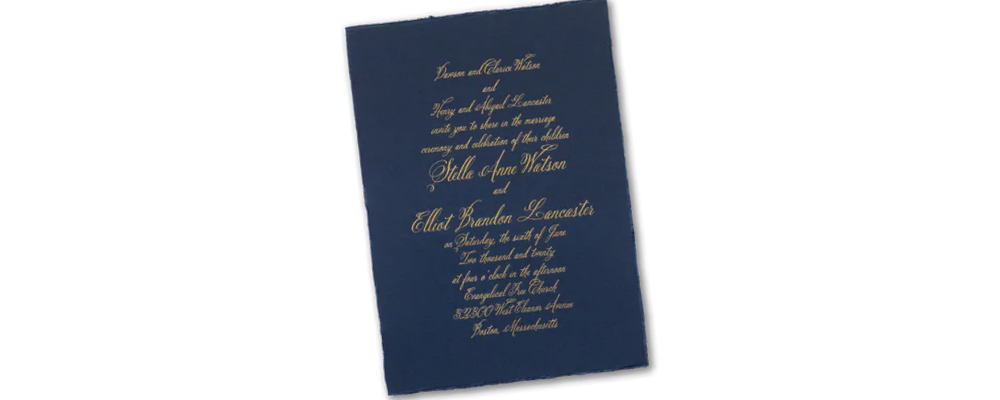 Dawson and Clarice Watson
and
Henry and Abigail Lancaster
invite you to share in the marriage
ceremony and celebration of their children
Stella Anne Watson
and
Elliot Brandon Lancaster
on Saturday, the sixth of June
Two thousand and twenty
at four o'clock in the afternoon
Evangelical Free Church
32300 West Eleanor Avenue
Boston, Massachusetts